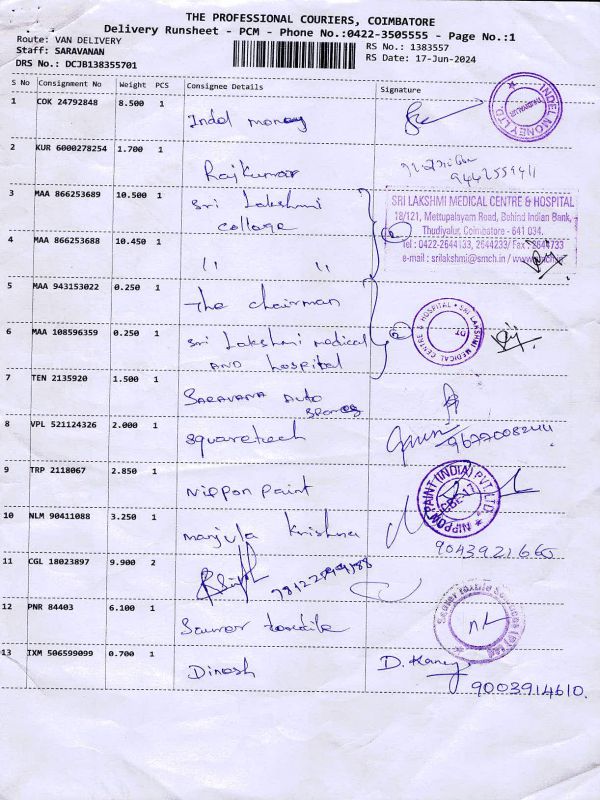 THE PROFESSIONAL COURIERS, COIMBATORE
Delivery Runsheet - PCM - Phone No.:0422-3505555 - Page No.:1
Route: VAN DELIVERY
Staff: SARAVANAN
DRS No.: DCJB138355701
RS No.: 1383557
RS Date: 17-Jun-2024
S No Consignment No Weight PCS Consignee Details Signature
1 COK 24792848 8.500 1 Indel money
INDEL MONEY LTD.
2 KUR 6000278254 1.700 1 Rajkumar
9442559411
3 MAA 866253689 10.500 1 Sri Lakshmi
collage
SRI LAKSHMI MEDICAL CENTRE & HOSPITAL
18/121, Mettupalayam Road, Behind Indian Bank,
Thudiyalur, Coimbatore - 641 034.
Tel : 0422-2644133, 2644233/ Fax : 2644733
e-mail : srilakshmi@smch.in / www.
4 MAA 866253688 10.450 1 " "
5 MAA 943153022 0.250 1 The chairman
6 MAA 108596359 0.250 1 Sri Lakshmi medical
AND hospital
SRI LAKSHMI MEDICAL CENTRE & HOSPITAL
7 TEN 2135920 1.500 1 SARAVANA AUTO
spares
8 VPL 521124326 2.000 1 squaretech
9 TRP 2118067 2.850 1 Nippon paint
NIPPON PAINT (INDIA) PVT. LTD.
10 NLM 90411088 3.250 1 manjula Krishna
9043921660
11 CGL 18023897 9.900 2
12 PNR 84403 6.100 1
13 IXM 506599099 0.700 1 Dinesh
9003914610.